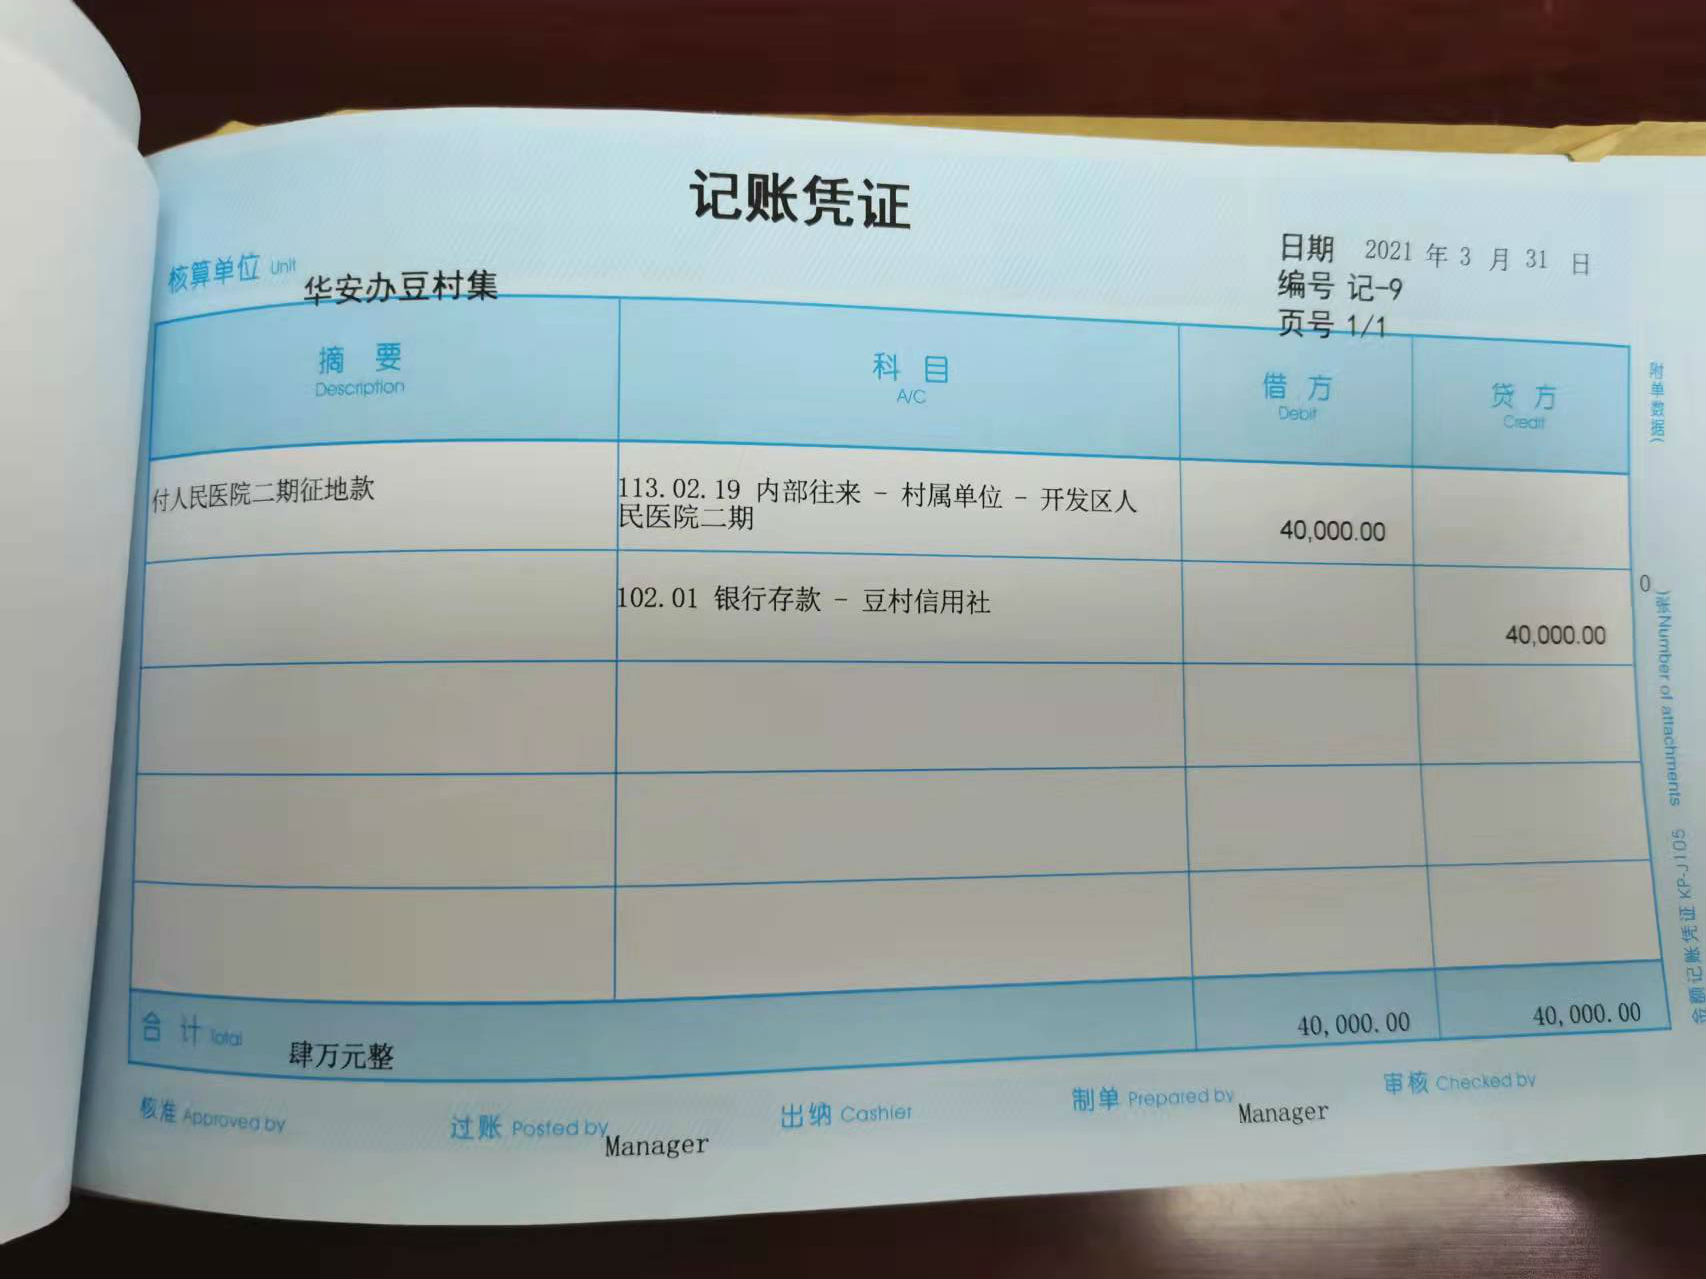 记账凭证
核算单位 Unit 华安办豆村集
日期 2021 年 3 月 31 日
编号 记-9
页号 1/1
摘 要 科 目 借 方 贷 方
Description A/C Debit Credit
付人民医院二期征地款 113.02.19 内部往来 - 村属单位 - 开发区人
民医院二期 40,000.00
102.01 银行存款 - 豆村信用社 40,000.00
合 计 Total 肆万元整 40,000.00 40,000.00
核准 Approved by 过账 Posted by Manager 出纳 Cashier 制单 Prepared by Manager 审核 Checked by
附单数据( 0 )张 Number of attachments
金额记账凭证 KP-J105